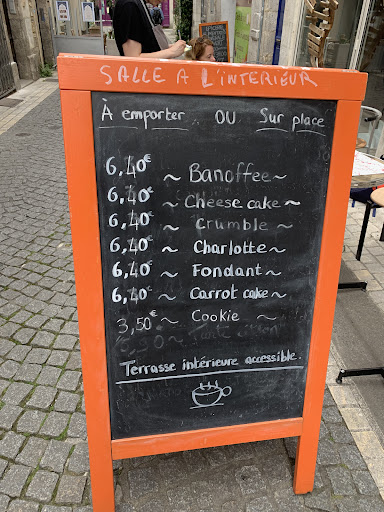 SALLE A L'INTERIEUR
À emporter OU Sur place
6,40€ ~ Banoffee ~
6,40€ ~ Cheese cake ~
6,40€ ~ Crumble ~
6,40€ ~ Charlotte ~
6,40€ ~ Fondant ~
6,40€ ~ Carrot cake ~
3,50€ ~ Cookie ~
Terrasse intérieure accessible.